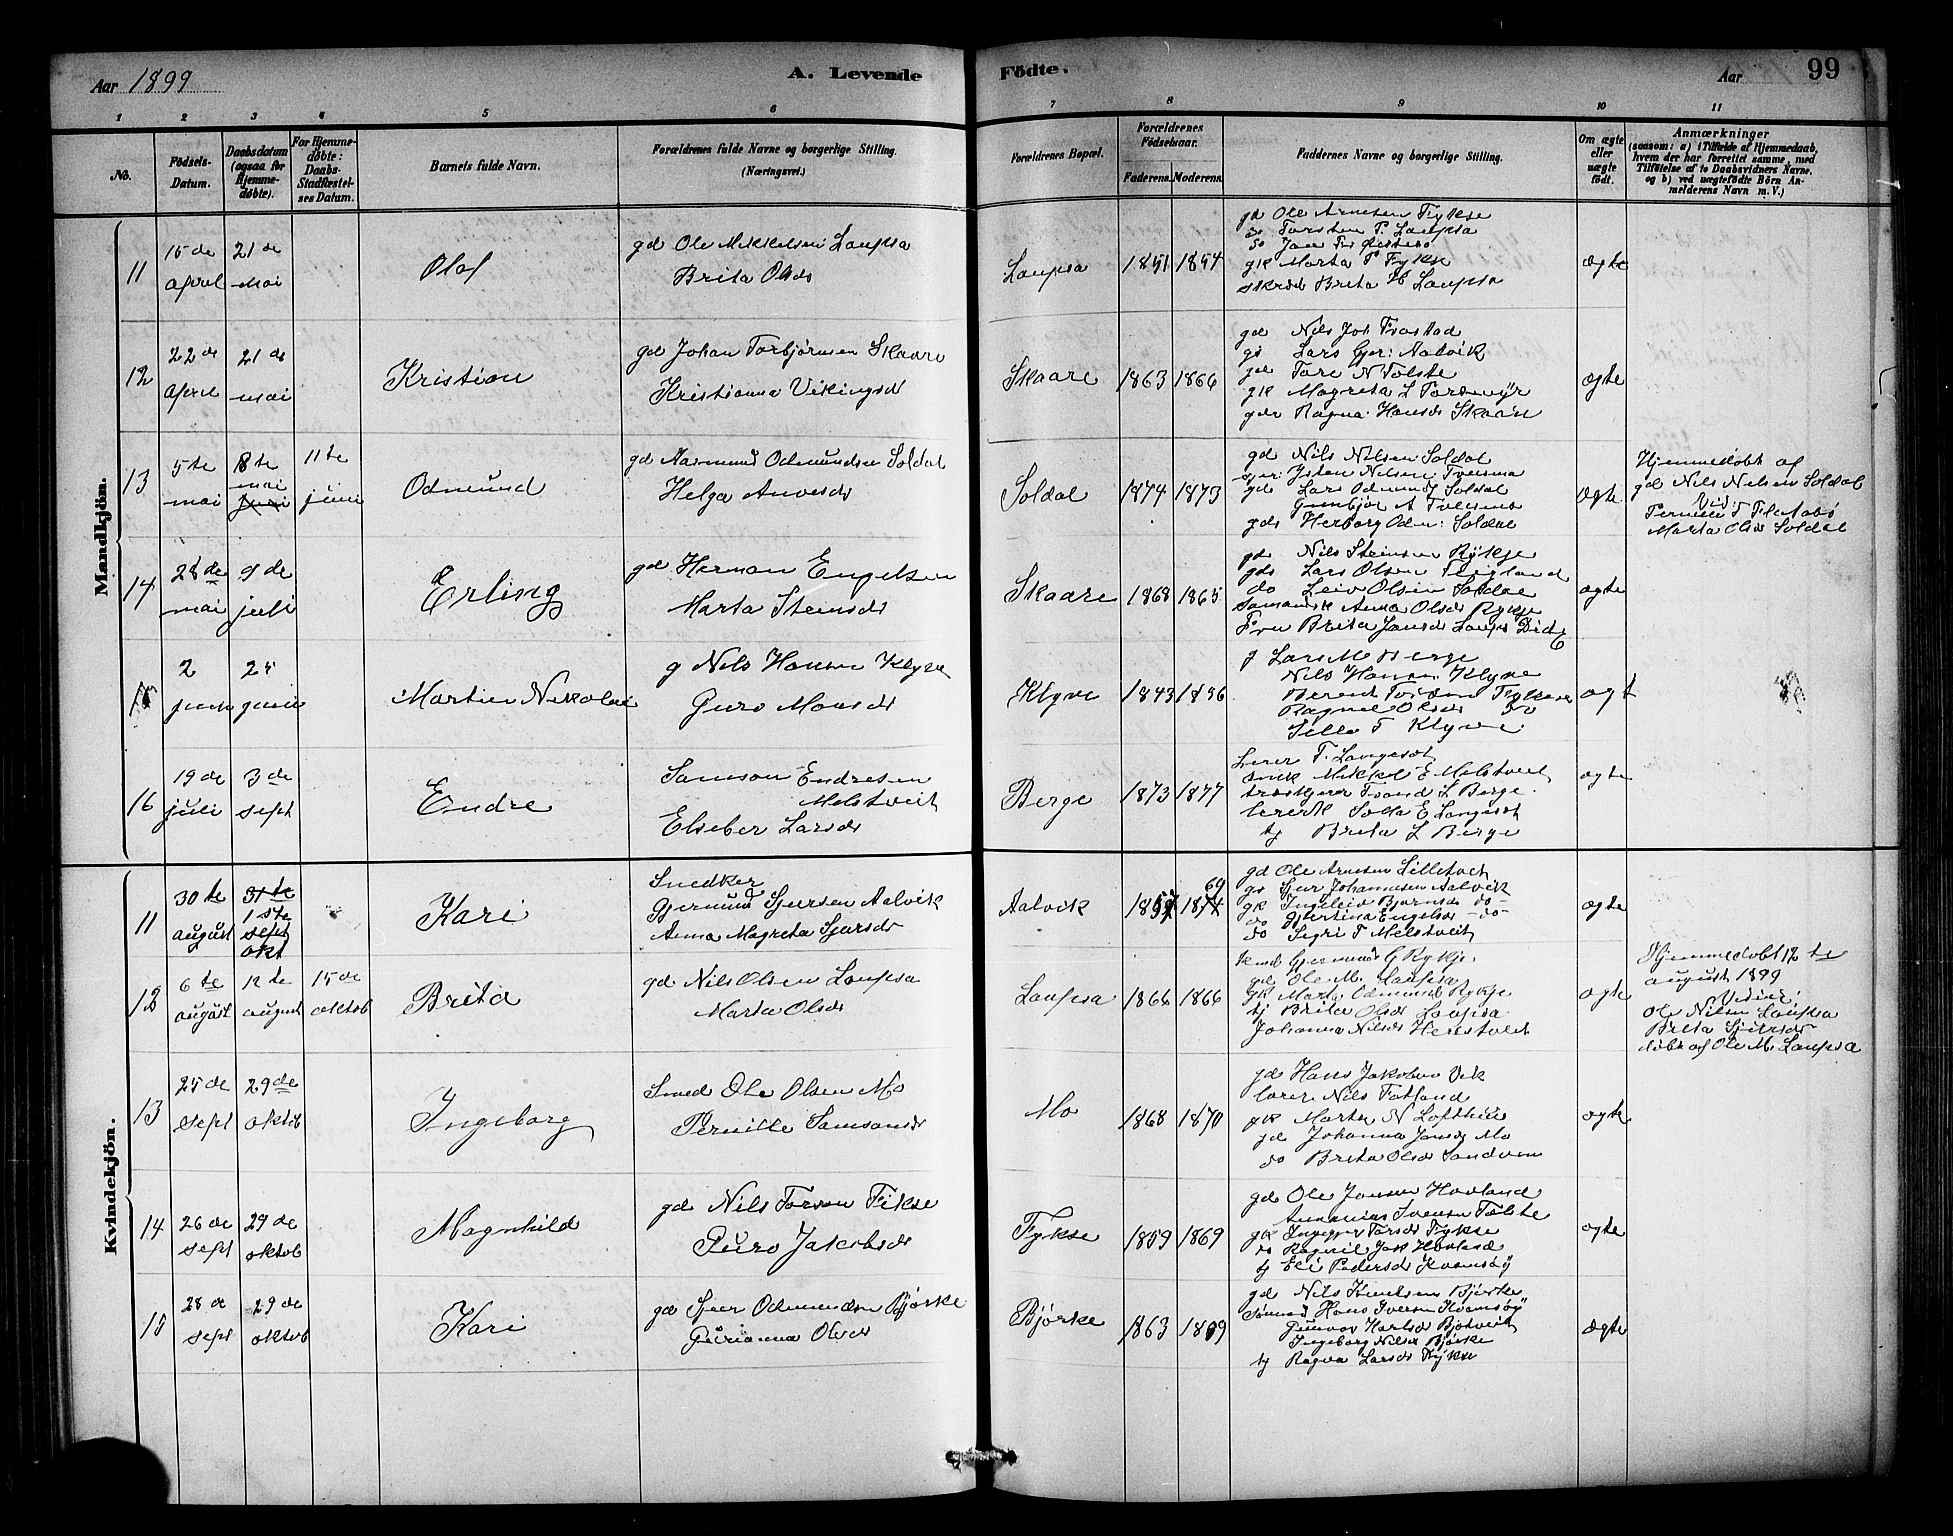 Aar 1899
A. Levende
Födte.
Aar
99
1 2 3 4 5 6 7 8 9 10 11
No.
Födsels-
Datum.
Daabsdatum
(ogsaa for
Hjemme-
døbte).
For Hjemme-
døbte:
Daabs-
Stadfæstel-
ses Datum.
Barnets fulde Navn.
Forældrenes fulde Navne og borgerlige Stilling.
(Næringsvei.)
Forældrenes Bopæl.
Forældrenes
Födselsaar.
Faderens. Moderens.
Faddernes Navne og borgerlige Stilling.
Om ægte
eller
uægte
født.
Anmærkninger
(saasom: a) i Tilfælde af Hjemmedaab,
hvem der har forrettet samme, med
Tilföielse af to Daabsvidners Navne,
og b) ved uægtefødte Börn An-
melderens Navn m. V.)
Mandkjön.
11
15 de
april
21 de
mai
Olaf
gd Ole Mikkelsen Laupsa
Brita Olsdr
Laupsa
1851 1854
gd Ole Arnesen Fykse
do Torsten P. Laupsa
do Jan
gk Marta P Fykse
Brita H Laupsa
ægte
12
22 de
april
21 de
mai
Kristian
gd Johan Torbjørnsen Skaare
Kristianna Vikingsd
Skaare
1863 1866
gd Nils Joh Frostad
gs Lars Gjer: Aalvik
gd Tore N Tolste
gk Magreta L
gdr Ragna Hansdr Skaare
ægte
13
5 te
mai
18 te
mai
Juni
11 te
juni
Odmund
gd Aasmund Odmundsen Soldal
Helga Arnesdr
Soldal
1874 1873
gd Nils Nilsen Soldal
Gjer: Jsten Nilsen Tveisme
gds Lars Odmunds Soldal
Gunbjør A Tveisme
gdr Herborg Odm: Soldal
ægte
Hjemmedøbt af
gd Nils Nilsen Soldal
Vid:
Pernille T Flatabø
Marta Olsdr Soldal
14
28 de
mai
9 de
juli
Erling
gd Herman Engelsen
Marta Steinsdr
Skaare
1868 1865
gd Nils Steinsen Rykje
gds Lars Olsen Teigland
do Leiv Olsen Soldal
Anna Olsdr Rykje
Fru Brita Jansdr Laupsa
ægte
15
2
juni
25
juni
Martin Nikolai
g Nils Hansen Klyve
Guro Monsdr
Klyve
1843 1856
g Lars M Berge
Nils Hansen Klyve
Berent Tvedten Fykse
Ragnel Olsdr do
Sella T Klyve
ægt
16
19 de
juli
3 de
sept
Endre
Samson Endresen
Melstveit
Elseber Larsdr
Berge
1873 1877
Lærer T. Langesæt
snik Mikkel E Melstveit
Trond L Berge
lærerk Solla E Langesæt
tj Brita L Berge
ægte
Kvindekjön.
11
30 te
august
31 te
1 ste
sept
okt
Kari
Snedker
Gjermund Sjursen Aalvik
Anna Magreta Sjursdr
Aalvik
1859 1874
69
gd Ole Arnesen Lilletveit
gs Sjur Johannesen Aalvik
gk Ingeleiv Bjørnsdr do
do Gjertina Engelsdr do
do Sigri T Melstveit
ægte
12
6 te
august
12 te
august
15 de
oktob
Brita
gd Nils Olsen Laupsa
Marta Olsdr
Laupsa
1866 1866
Gjermund G Rykje
gd Ole M. Laupsa
gk Marta Odmunds Rykje
tj Brita Olsdr Laupsa
Johanna Nilsdr Herestveit
ægte
Hjemmedøbt 12 te
august 1899
Vidner:
Ole Nilsen Laupsa
Brita Sjursdr
døbt af Ole M. Laupsa
13
25 de
sept
29 de
oktob
Ingeborg
Smed Ole Olsen Mo
Pernille Samsonsdr
Mo
1868 1870
gd Hans Jakobsen Vik
lærer Nils Fotland
gk Marta N Lofthus
gd Johanna Jansdr Mo
do Brita Olsdr Sandven
ægte
14
26 de
sept
29 de
oktob
Magnhild
gd Nils Torson Fikse
Guro Jakobsdr
Fykse
1859 1869
gd Ole Jonsen Hovland
Ananias Svensen Tolste
gk Ingegjer Torsdr Fykse
do Ragnil Jak Hovland
tj Eli Pedersdr Kvamsøy
ægte
15
28 de
sept
29 de
oktob
Kari
gd Sjur Odmundsen Bjørke
Gurianna Olsdr
Bjørke
1863 1859
gd Nils Knudsen Bjørke
Sømand Hans Iversen Kvamsøy
Gunvor Hartsdr Bjotveit
Ingeborg Nilsdr Bjørke
tj Ragna Larsdr Rykje
ægte